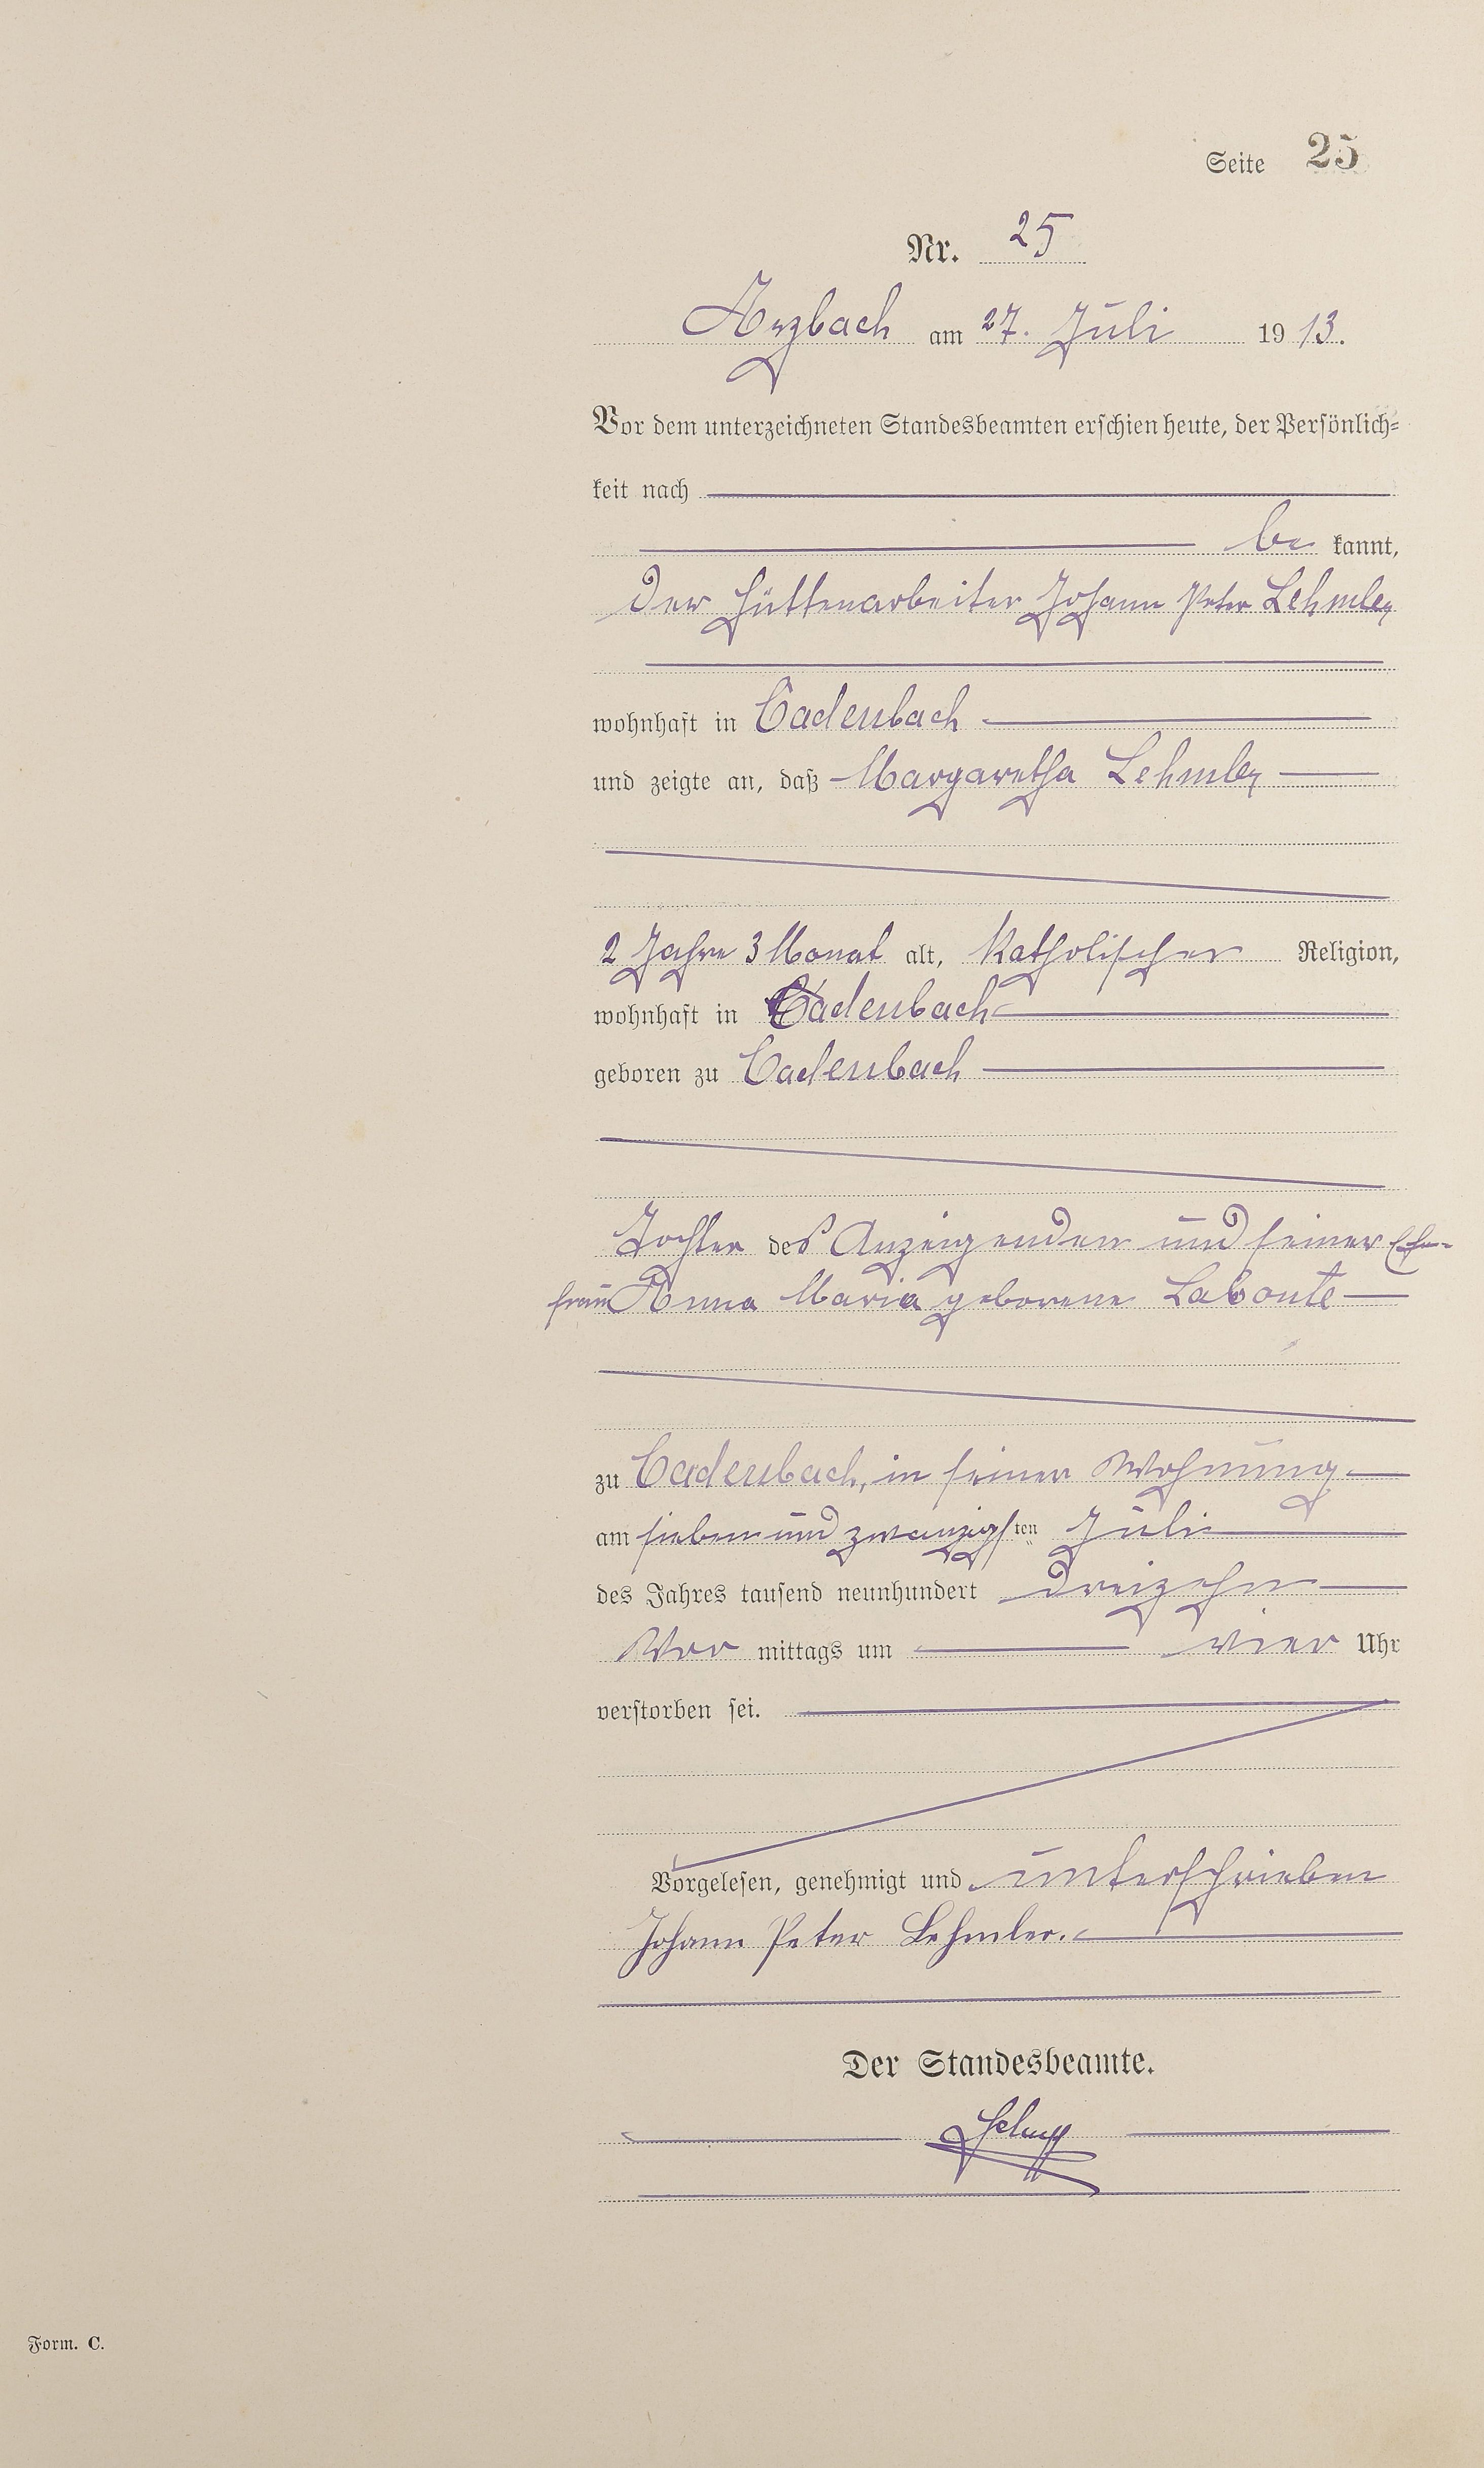 Seite 25
Nr. 25
Arzbach am 27. Juli 1913.
Vor dem unterzeichneten Standesbeamten erschien heute, der Persönlich-
keit nach
be kannt,
der Hüttenarbeiter Johann Peter Lehmler
wohnhaft in Cadenbach
und zeigte an, daß Margaretha Lehmler
2 Jahre 3 Monat alt, katholischer Religion,
wohnhaft in Cadenbach
geboren zu Cadenbach
Tochter des Anzeigenden und seiner Ehe-
frau Anna Maria geborene Labonte
zu Cadenbach, in seiner Wohnung
am sieben und zwanzigsten Juli
des Jahres tausend neunhundert dreizehn
Vor mittags um vier Uhr
verstorben sei.
Vorgelesen, genehmigt und unterschrieben
Johann Peter Lehmler.
Der Standesbeamte.
Form. C.